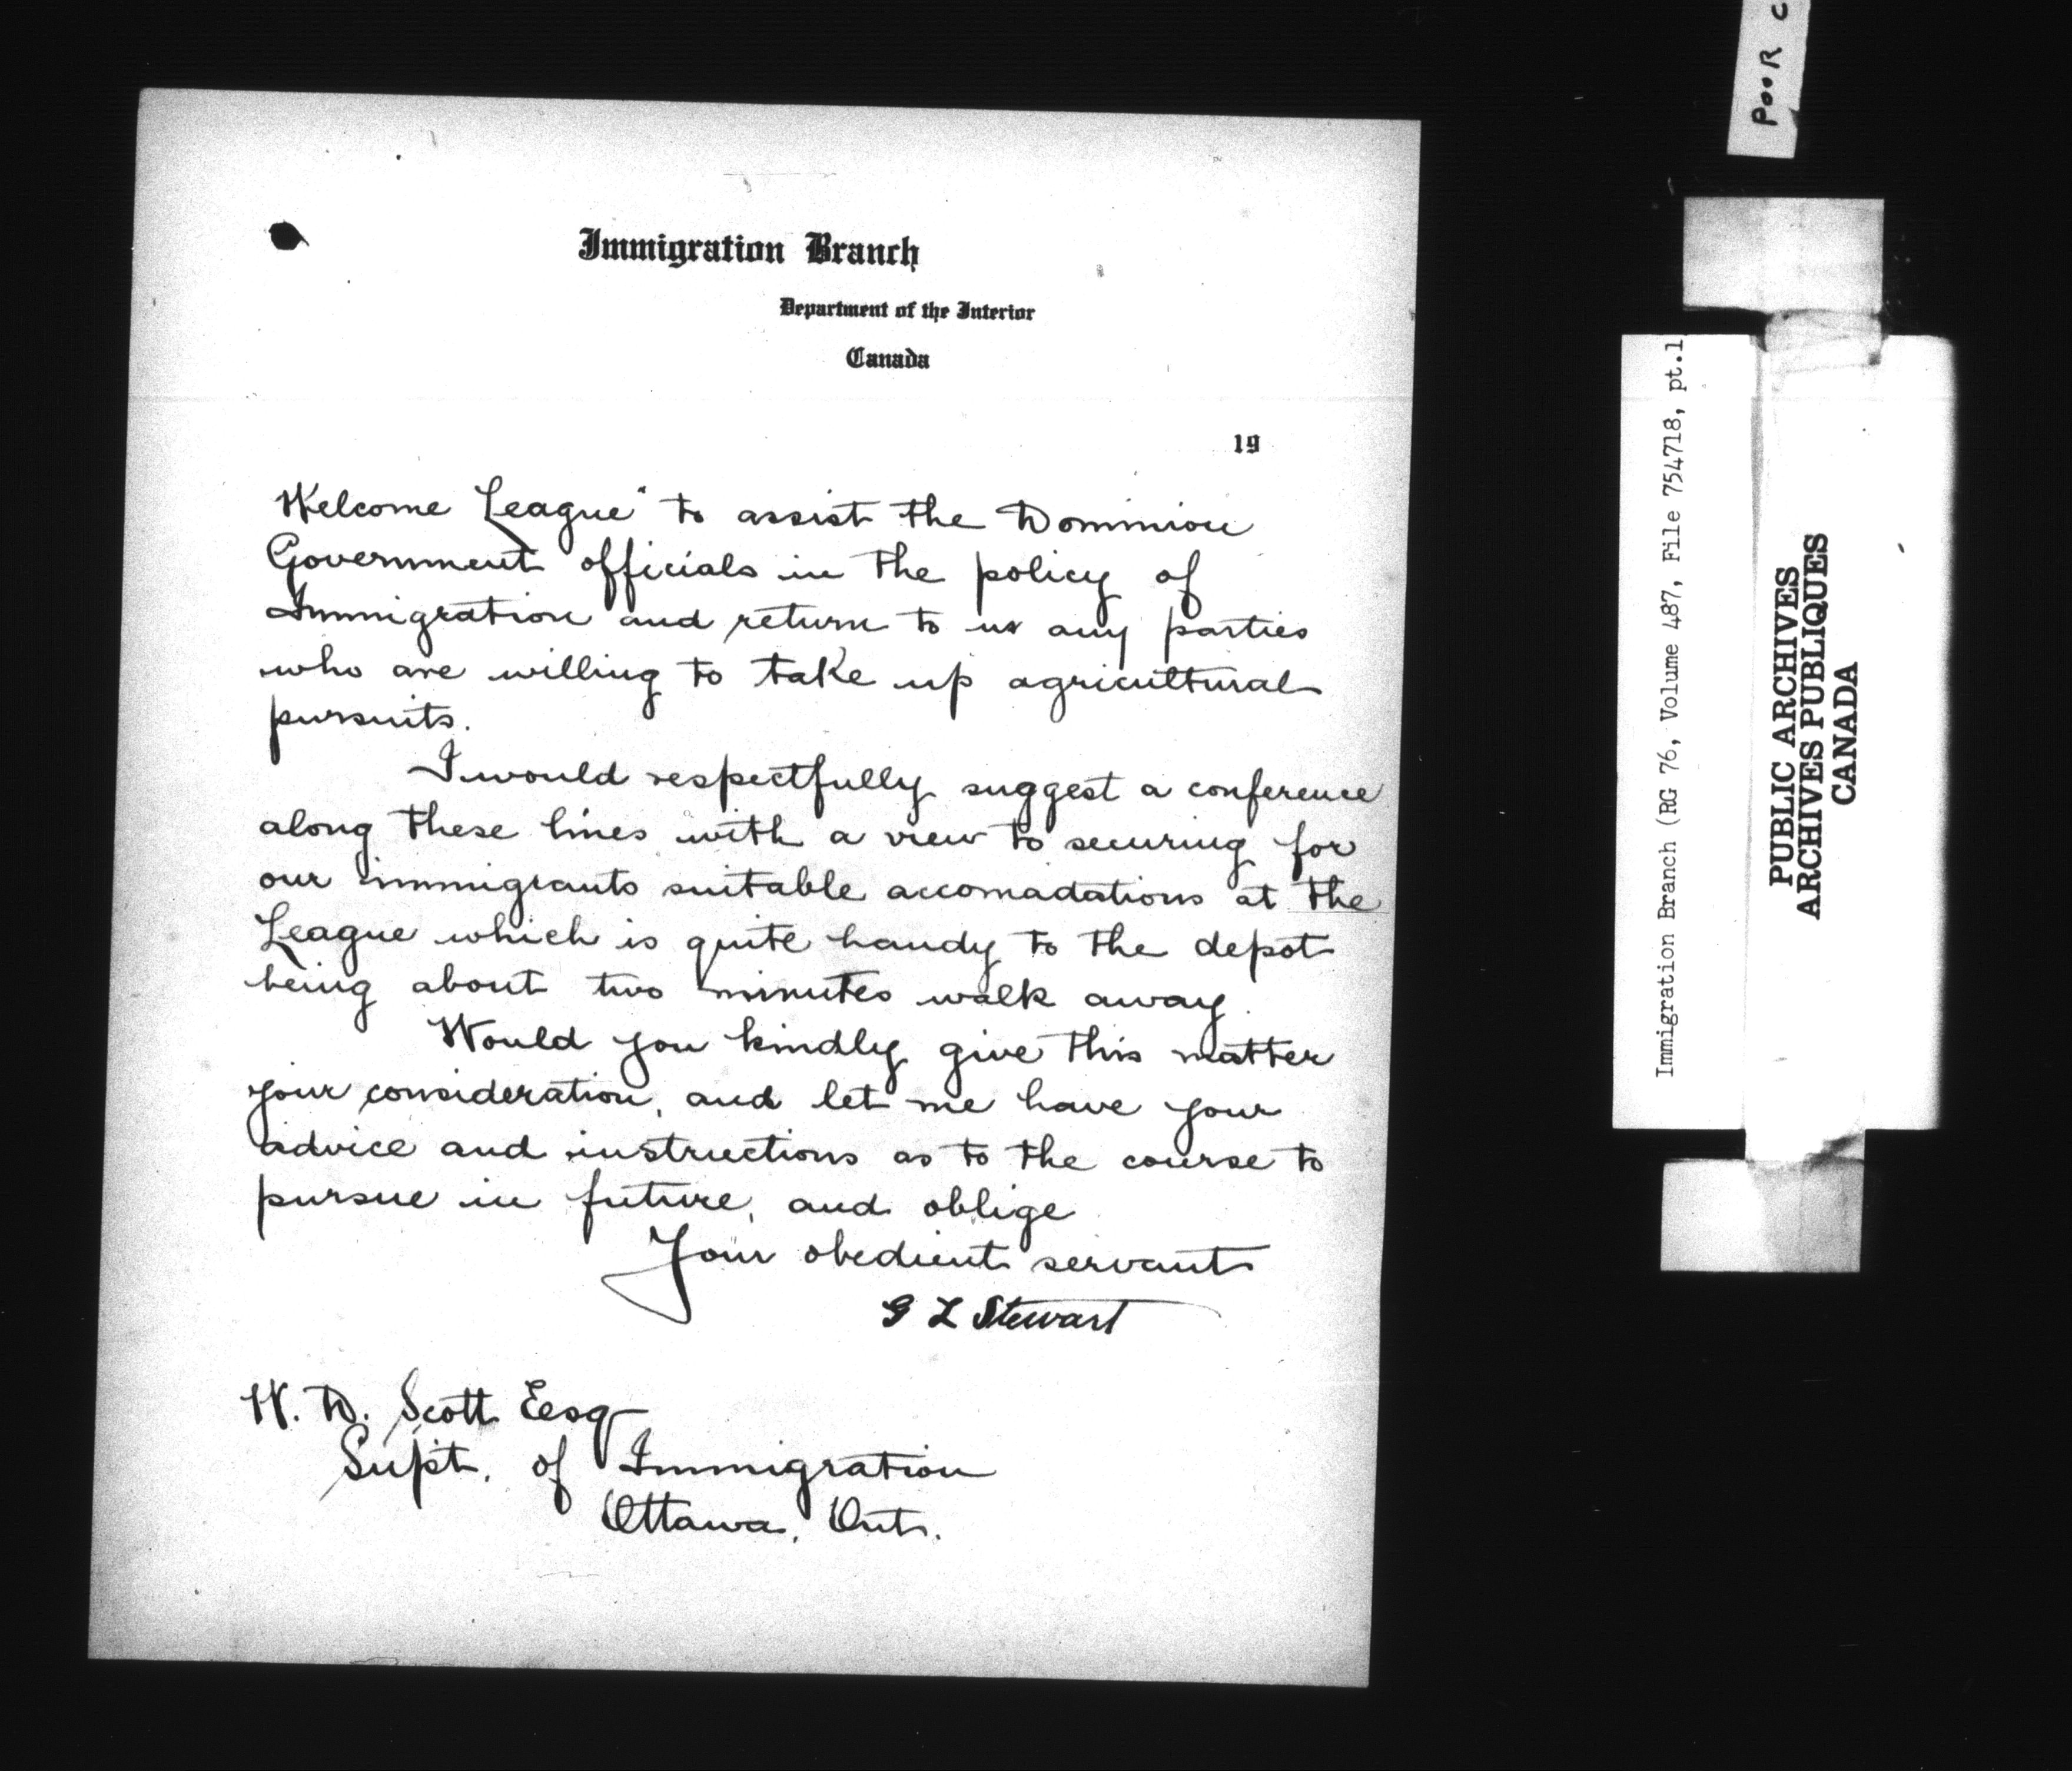 Immigration Branch
Department of the Interior
Canada
19
Welcome League" to assist the Dominion
Government officials in the policy of
Immigration and return to us any parties
who are willing to take up agricultural
pursuits.
I would respectfully suggest a conference
along these lines with a view to securing for
our immigrants suitable accomadations at the
League which is quite handy to the depot
being about two minutes walk away.
Would you kindly give this matter
your consideration, and let me have your
advice and instructions as to the course to
pursue in future, and oblige
Your obedient servant
G L Stewart
W. D. Scott Eesq
Supt. of Immigration
Ottawa, Ont.
POOR C
Immigration Branch (RG 76, Volume 487, File 754718, pt.1
PUBLIC ARCHIVES
ARCHIVES PUBLIQUES
CANADA